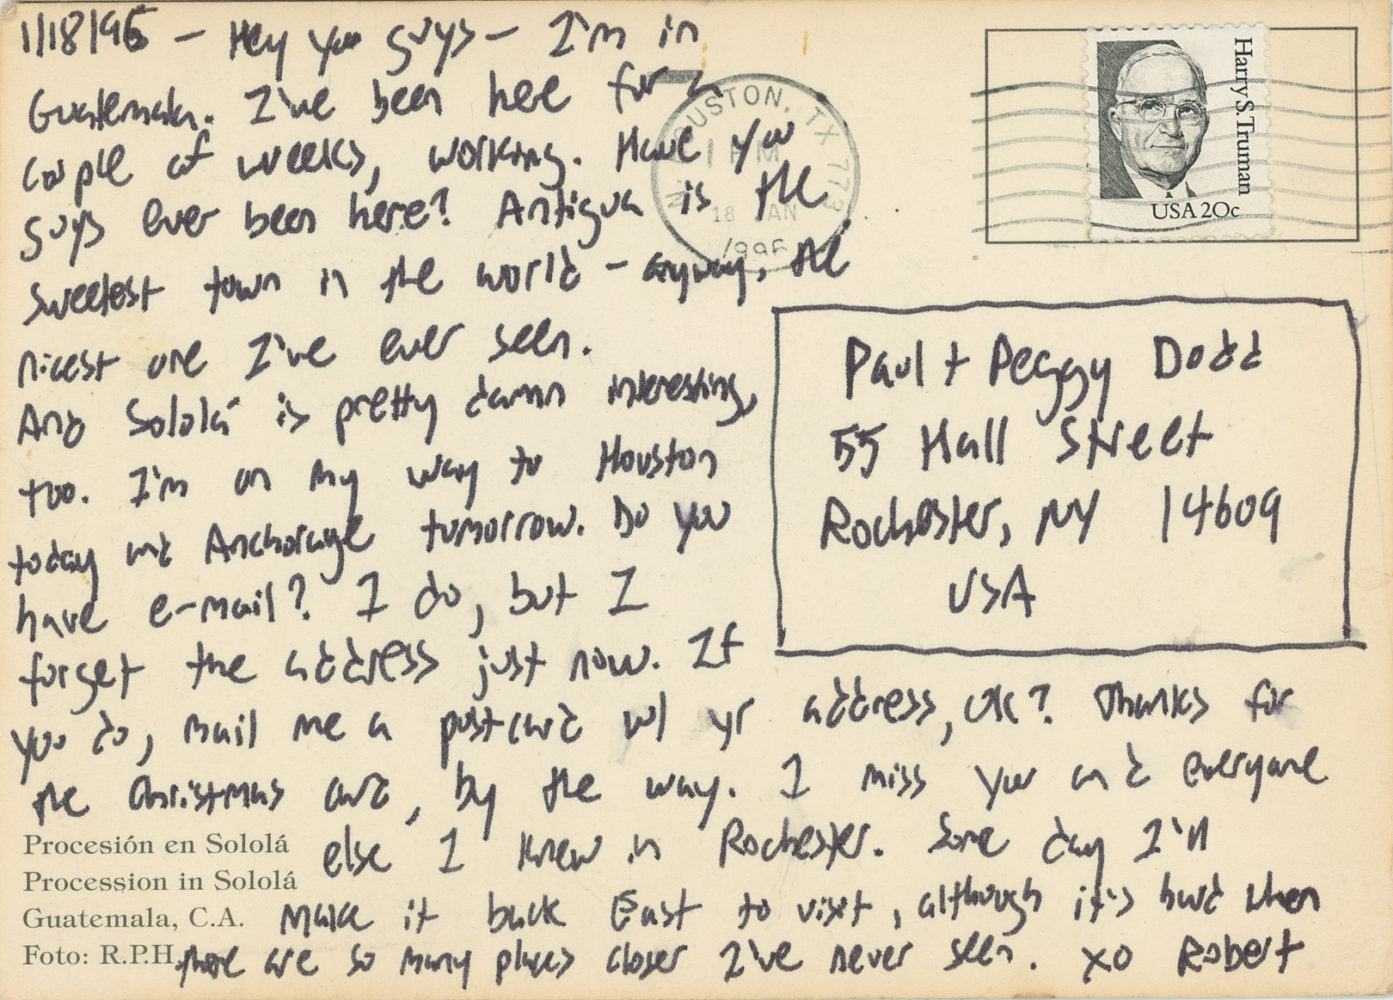 1/18/96 - Hey you guys - I'm in
Guatemala. I've been here for a
couple of weeks, working. Have you
guys ever been here? Antigua is the
sweetest town in the world - anyway, the
nicest one I've ever seen.
And Sololá is pretty damn interesting,
too. I'm on my way to Houston
today and Anchorage tomorrow. Do you
have e-mail? I do, but I
forget the address just now. If
you do, mail me a postcard w/ yr address, OK? Thanks for
the Christmas card, by the way. I miss you and everyone
else I knew in Rochester. Some day I'll
make it back East to visit, although it's hard when
there are so many places closer I've never seen. XO Robert
Procesión en Sololá
Procession in Sololá
Guatemala, C.A.
Foto: R.P.H.
N. HOUSTON, TX 773
1 PM
18 JAN
1996
Harry S. Truman
USA 20c
Paul + Peggy Dodd
55 Hall Street
Rochester, NY 14609
USA